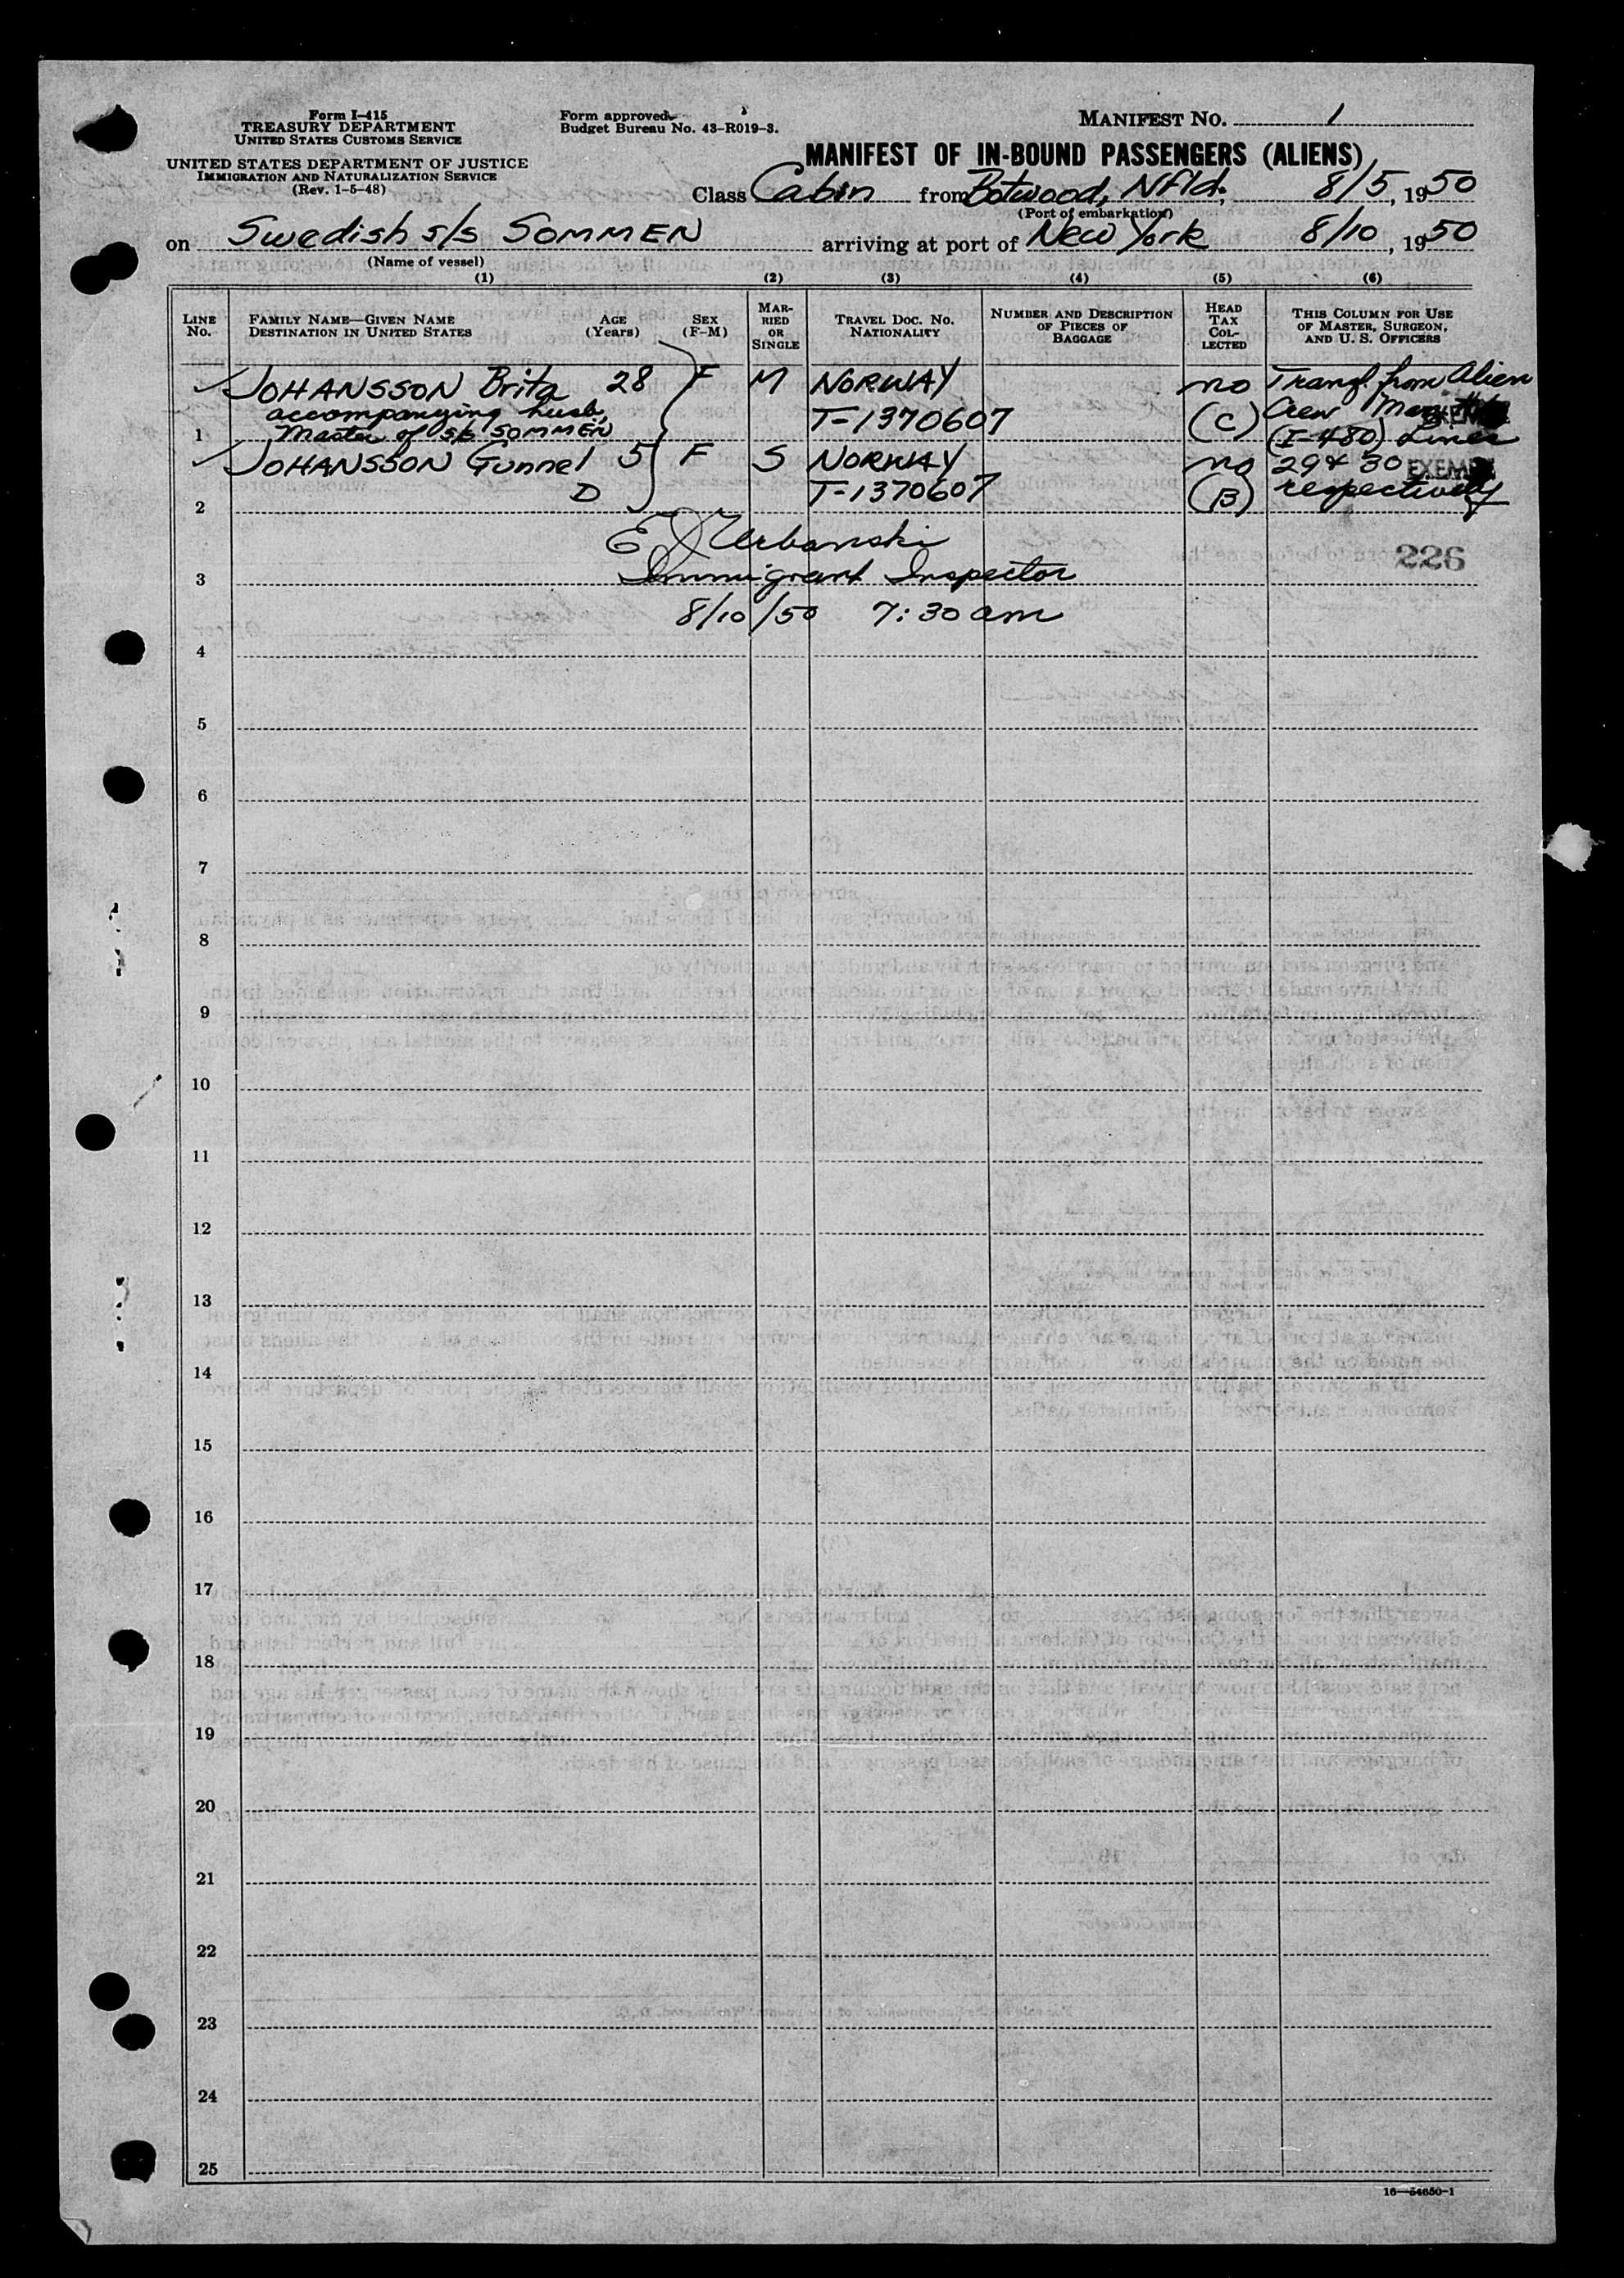 Form I-415
TREASURY DEPARTMENT
UNITED STATES CUSTOMS SERVICE
UNITED STATES DEPARTMENT OF JUSTICE
IMMIGRATION AND NATURALIZATION SERVICE
(Rev. 1-5-48)
Form approved.
Budget Bureau No. 43-R019-3.
MANIFEST No. 1
MANIFEST OF IN-BOUND PASSENGERS (ALIENS)
Class Cabin from Botwood, Nfld., 8/5, 1950
(Port of embarkation)
on Swedish s/s SOMMEN arriving at port of New York 8/10, 1950
(Name of vessel)
(1) (2) (3) (4) (5) (6)
LINE No.
FAMILY NAME—GIVEN NAME
DESTINATION IN UNITED STATES
AGE (Years)
SEX (F-M)
MARRIED OR SINGLE
TRAVEL DOC. NO. NATIONALITY
NUMBER AND DESCRIPTION OF PIECES OF BAGGAGE
HEAD TAX COLLECTED
THIS COLUMN FOR USE OF MASTER, SURGEON, AND U. S. OFFICERS
JOHANSSON Brita 28 F M NORWAY no Transf. from Alien
accompanying husb, T-1370607 (C) Crew
1 Master of s/s SOMMEN (I-480) Lines
JOHANSSON Gunnel 5 F S NORWAY no 29 & 30 EXEM
D T-1370607 (B) respectively
2
E J Urbanski
226
3 Immigrant Inspector
8/10/50 7:30 am
4
5
6
7
8
9
10
11
12
13
14
15
16
17
18
19
20
21
22
23
24
25
16—54650-1